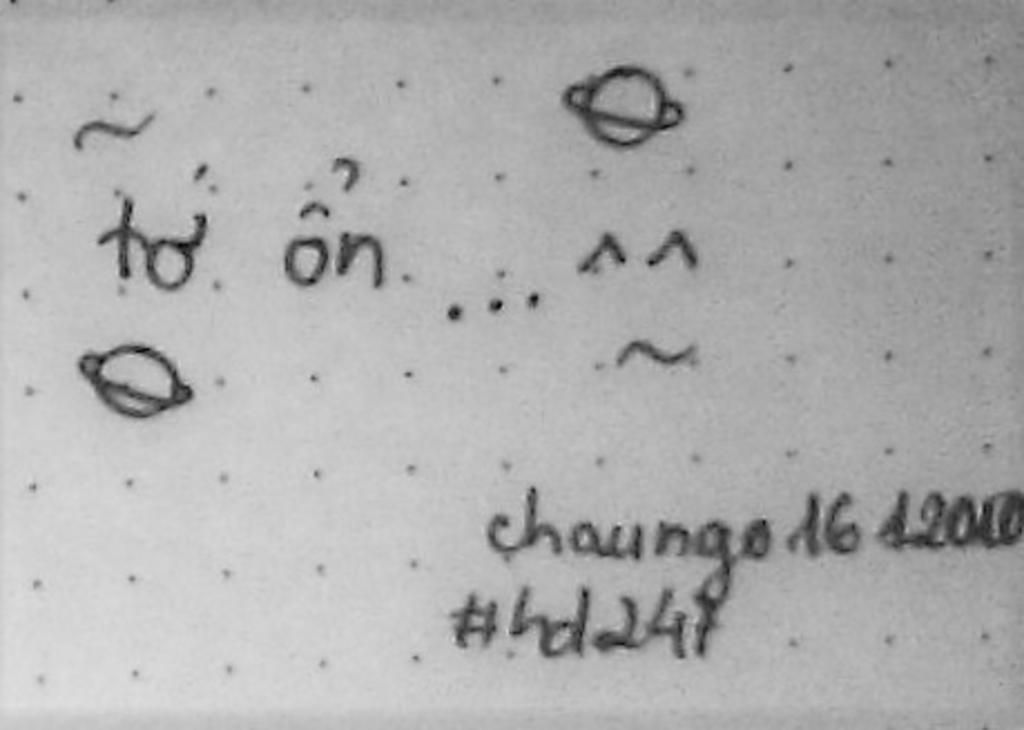 ~
tớ ổn ... ^^
~
chaungo16 12010
#hd24h